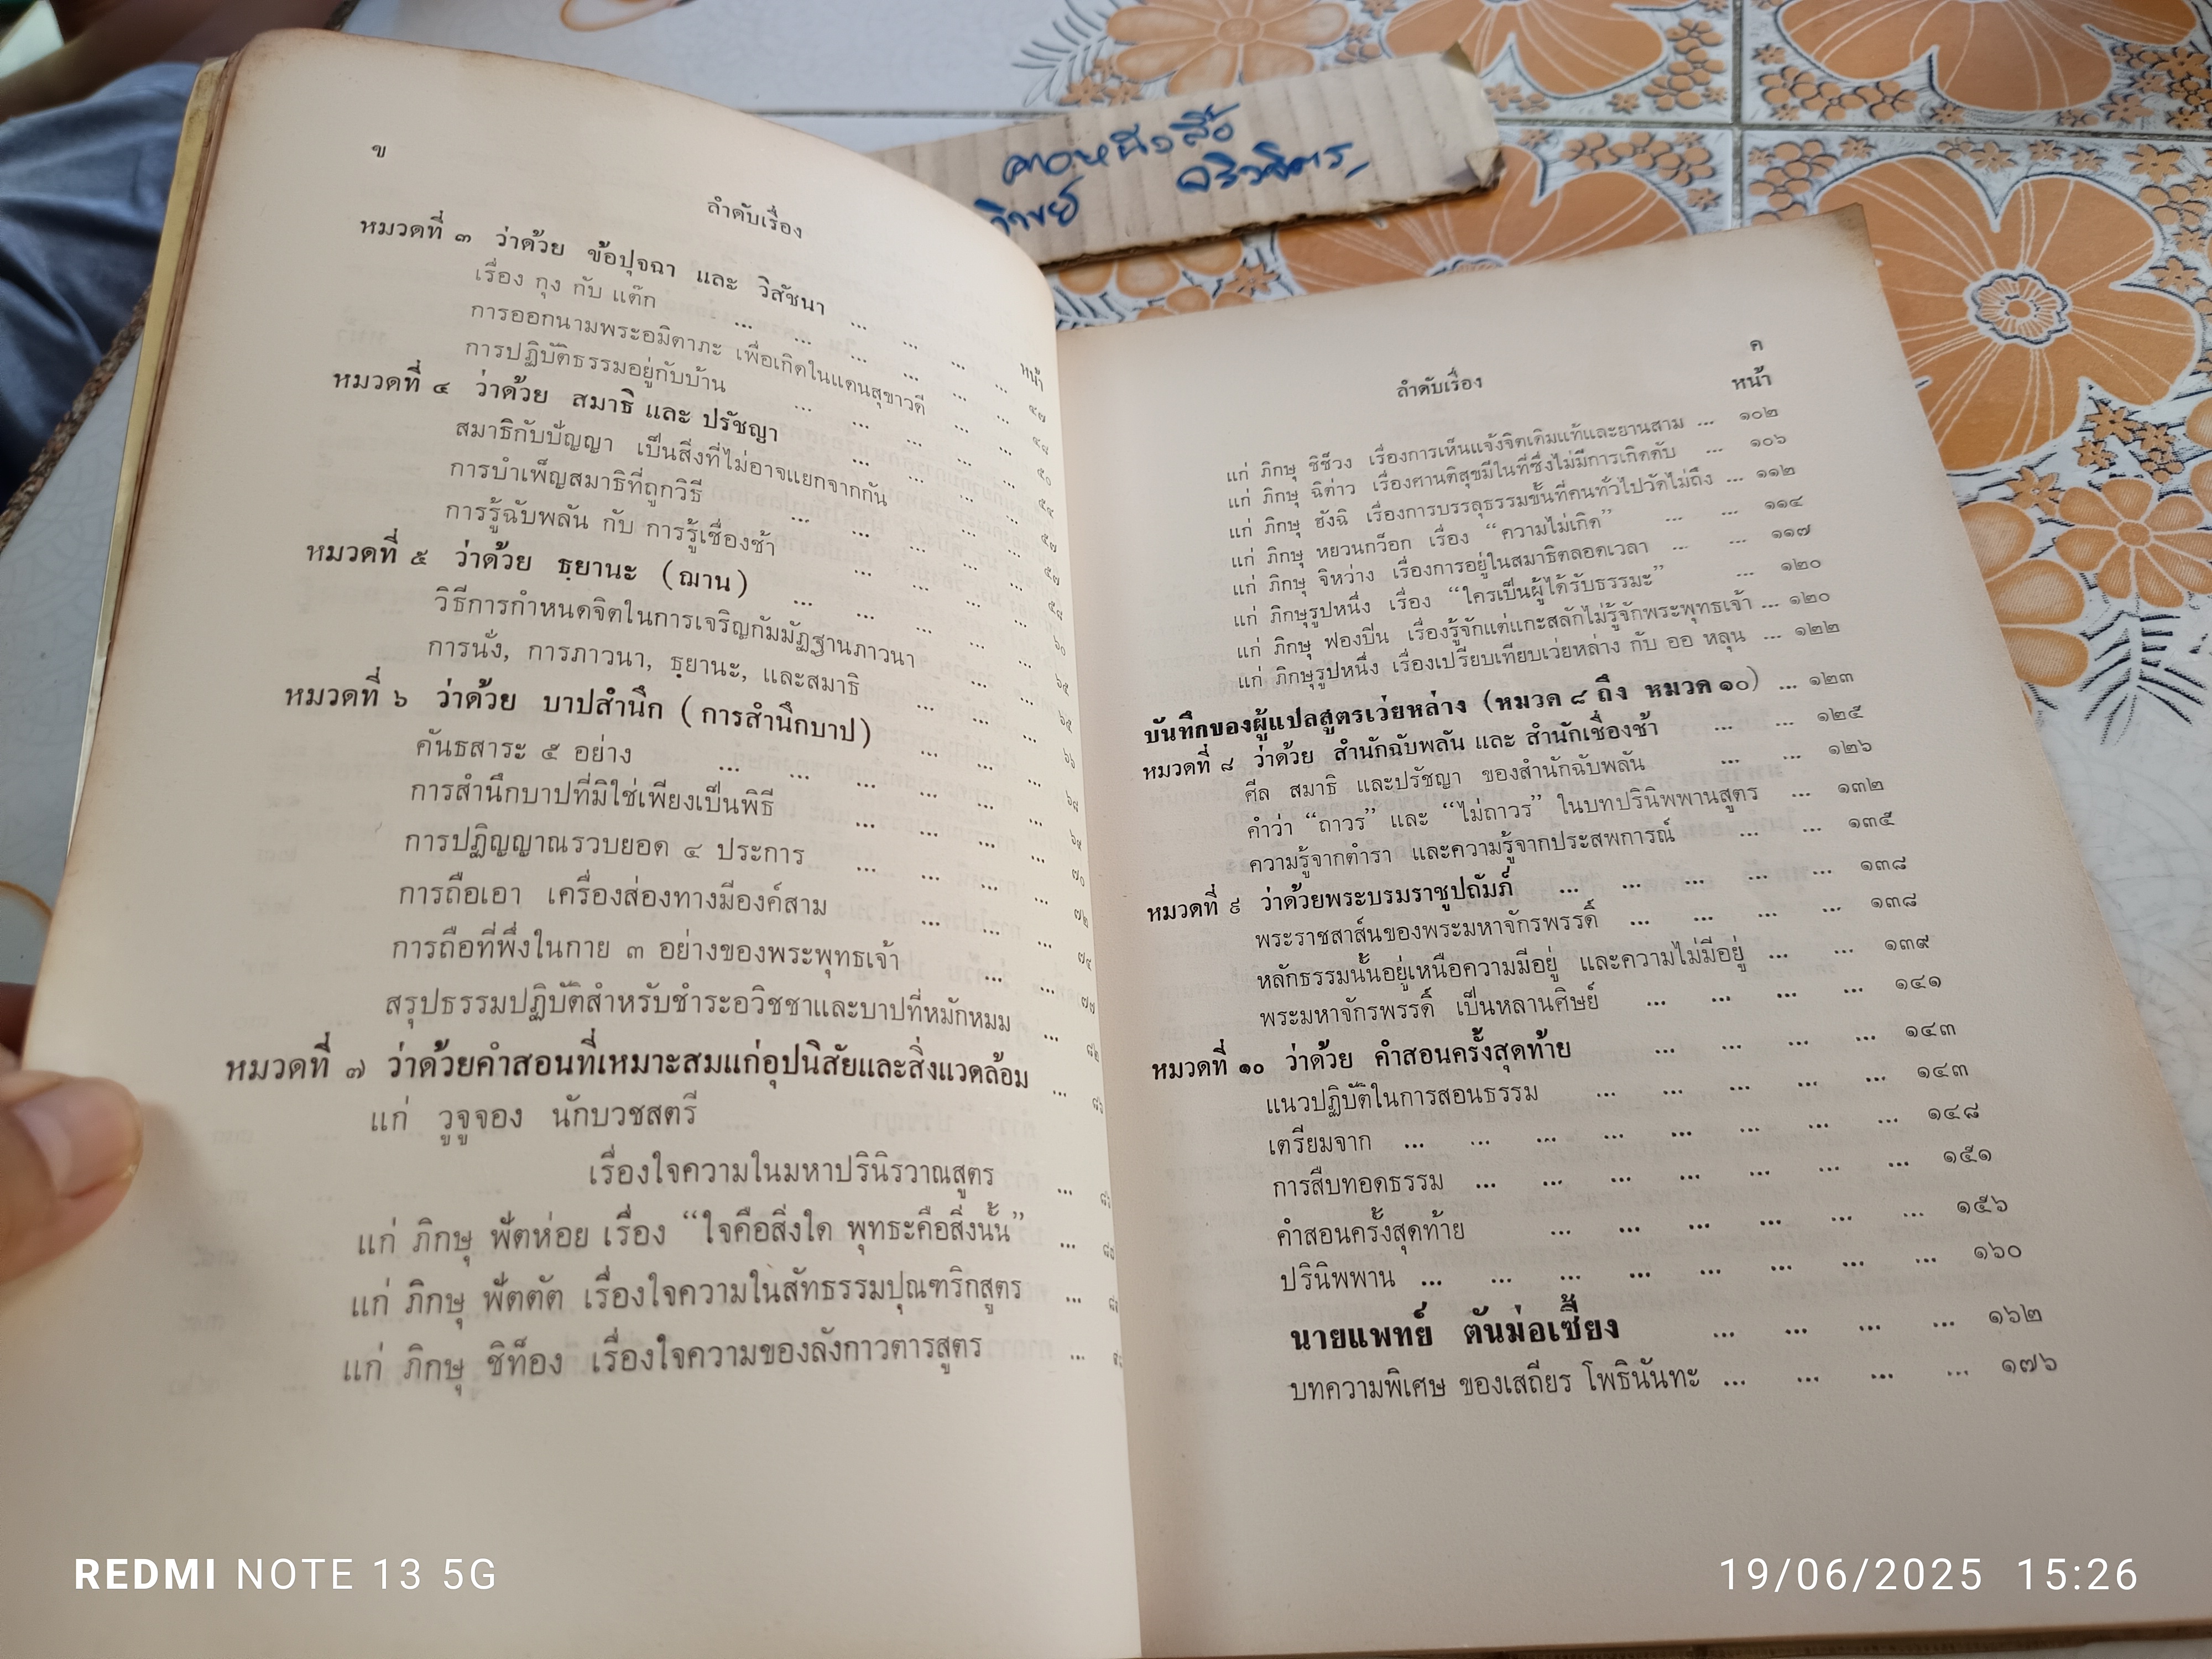 ข
ลำดับเรื่อง
หน้า
หมวดที่ ๓ ว่าด้วย ข้อปุจฉา และ วิสัชนา ... ๔๗
เรื่อง กุง กับ แต๊ก ... ... ... ... ...
การออกนามพระอมิตาภะ เพื่อเกิดในแดนสุขาวดี ... ...
การปฏิบัติธรรมอยู่กับบ้าน ... ... ... ... ๕๐
หมวดที่ ๔ ว่าด้วย สมาธิ และ ปรัชญา ... ... ...
สมาธิกับปัญญา เป็นสิ่งที่ไม่อาจแยกจากกัน ... ...
การบำเพ็ญสมาธิที่ถูกวิธี ... ... ... ... ๕๗
การรู้ฉับพลัน กับ การรู้เชื่องช้า ... ... ...
หมวดที่ ๕ ว่าด้วย ธฺยานะ (ฌาน) ... ... ... ... ๖๐
วิธีการกำหนดจิตในการเจริญกัมมัฏฐานภาวนา ... ...
การนั่ง, การภาวนา, ธฺยานะ, และสมาธิ ... ... ๖๕
หมวดที่ ๖ ว่าด้วย บาปสำนึก (การสำนึกบาป) ... ... ๖๖
คันธสาระ ๕ อย่าง ... ... ... ... ... ๖๘
การสำนึกบาปที่มิใช่เพียงเป็นพิธี ... ... ... ... ๖๙
การปฏิญญาณรวบยอด ๔ ประการ ... ... ... ... ๗๐
การถือเอา เครื่องส่องทางมีองค์สาม ... ... ... ๗๒
การถือที่พึ่งในกาย ๓ อย่างของพระพุทธเจ้า ... ... ๗๔
สรุปธรรมปฏิบัติสำหรับชำระอวิชชาและบาปที่หมักหมม ... ๗๗
หมวดที่ ๗ ว่าด้วยคำสอนที่เหมาะสมแก่อุปนิสัยและสิ่งแวดล้อม ...
แก่ วูจูจอง นักบวชสตรี
เรื่องใจความในมหาปรินิรวาณสูตร ...
แก่ ภิกษุ ฟัตห่อย เรื่อง “ใจคือสิ่งใด พุทธะคือสิ่งนั้น” ...
แก่ ภิกษุ ฟัตตัต เรื่องใจความในสัทธรรมปุณฑริกสูตร ...
แก่ ภิกษุ ชิท็อง เรื่องใจความของลังกาวตารสูตร ...
ค
ลำดับเรื่อง
หน้า
แก่ ภิกษุ ชิช็วง เรื่องการเห็นแจ้งจิตเดิมแท้และยานสาม ... ๑๐๒
แก่ ภิกษุ ฉิต่าว เรื่องศานติสุขมีในที่ซึ่งไม่มีการเกิดดับ ... ๑๐๖
แก่ ภิกษุ ฮังฉิ เรื่องการบรรลุธรรมขั้นที่คนทั่วไปวัดไม่ถึง ... ๑๑๒
แก่ ภิกษุ หยวนกว็อก เรื่อง “ความไม่เกิด” ... ... ๑๑๔
แก่ ภิกษุ จิหว่าง เรื่องการอยู่ในสมาธิตลอดเวลา ... ... ๑๑๗
แก่ ภิกษุรูปหนึ่ง เรื่อง “ใครเป็นผู้ได้รับธรรมะ” ... ๑๒๐
แก่ ภิกษุ ฟองปีน เรื่องรู้จักแต่แกะสลักไม่รู้จักพระพุทธเจ้า ... ๑๒๐
แก่ ภิกษุรูปหนึ่ง เรื่องเปรียบเทียบเว่ยหล่าง กับ ออ หลุน ... ๑๒๒
บันทึกของผู้แปลสูตรเว่ยหล่าง (หมวด ๘ ถึง หมวด ๑๐) ... ๑๒๓
หมวดที่ ๘ ว่าด้วย สำนักฉับพลัน และ สำนักเชื่องช้า ... ... ๑๒๕
ศีล สมาธิ และปรัชญา ของสำนักฉับพลัน ... ... ๑๒๖
คำว่า “ถาวร” และ “ไม่ถาวร” ในบทปรินิพพานสูตร ... ๑๓๒
ความรู้จากตำรา และความรู้จากประสพการณ์ ... ... ๑๓๕
หมวดที่ ๙ ว่าด้วยพระบรมราชูปถัมภ์ ... ... ... ... ... ๑๓๘
พระราชสาส์นของพระมหาจักรพรรดิ์ ... ... ... ... ๑๓๘
หลักธรรมนั้นอยู่เหนือความมีอยู่ และความไม่มีอยู่ ... ... ๑๓๙
พระมหาจักรพรรดิ์ เป็นหลานศิษย์ ... ... ... ... ๑๔๑
หมวดที่ ๑๐ ว่าด้วย คำสอนครั้งสุดท้าย ... ... ... ... ๑๔๓
แนวปฏิบัติในการสอนธรรม ... ... ... ... ... ๑๔๓
เตรียมจาก ... ... ... ... ... ... ... ... ๑๔๘
การสืบทอดธรรม ... ... ... ... ... ... ... ๑๕๑
คำสอนครั้งสุดท้าย ... ... ... ... ... ... ๑๕๖
ปรินิพพาน ... ... ... ... ... ... ... ... ๑๖๐
นายแพทย์ ตันม่อเซี้ยง ... ... ... ... ๑๖๒
บทความพิเศษ ของเสถียร โพธินันทะ ... ... ... ... ๑๗๖
REDMI NOTE 13 5G
19/06/2025 15:26